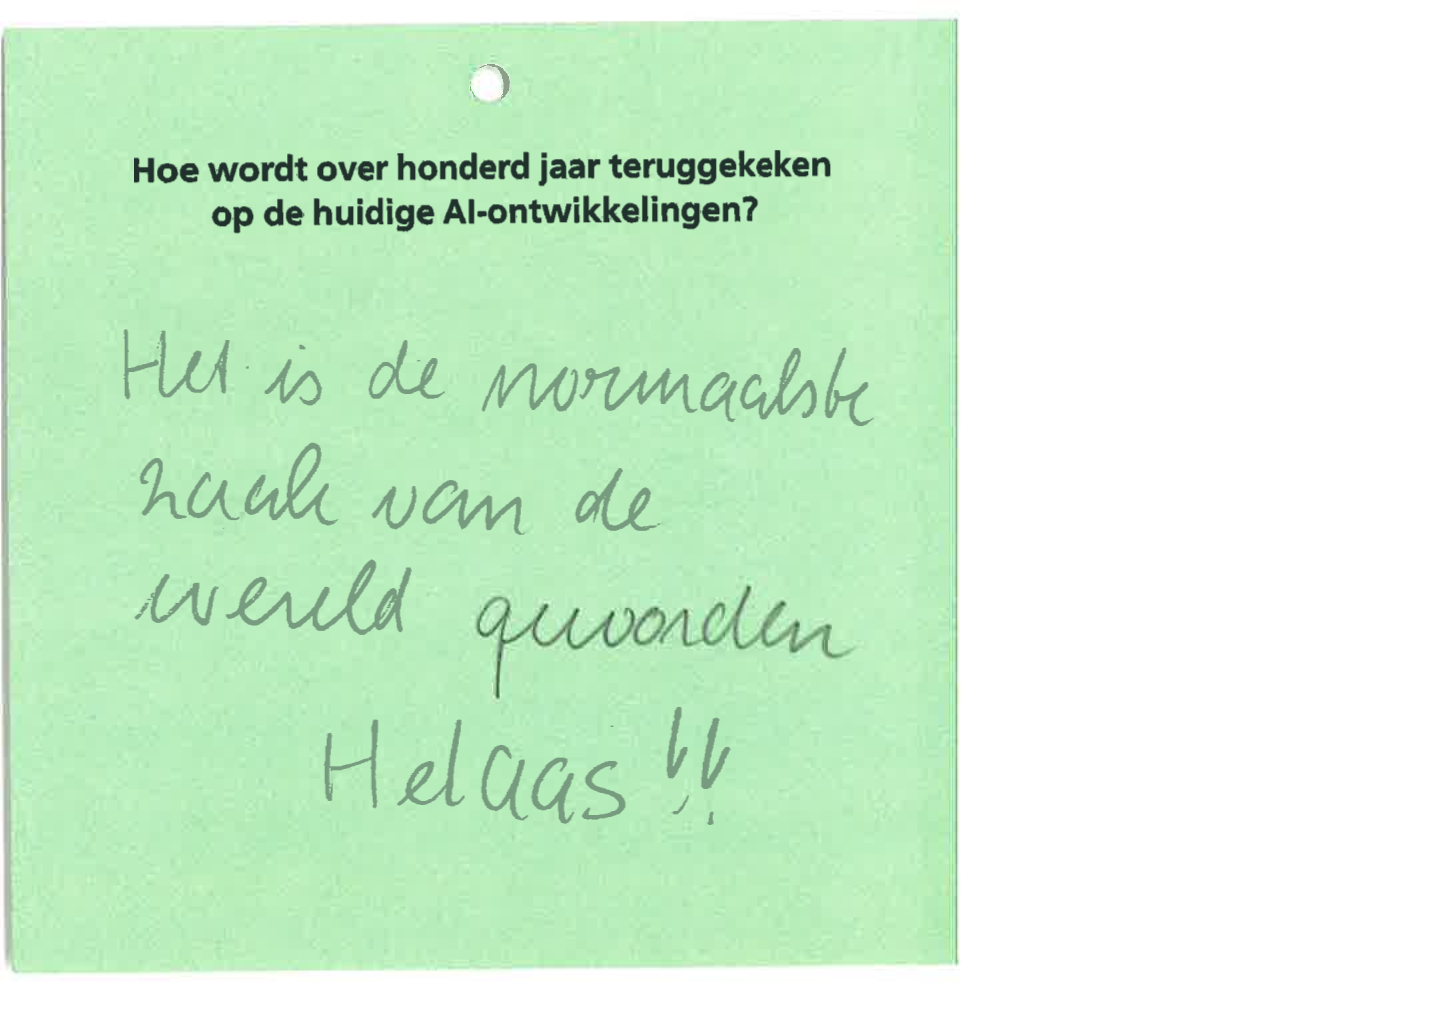 Hoe wordt over honderd jaar teruggekeken
op de huidige AI-ontwikkelingen?
Het is de normaalste
zaak van de
wereld geworden
Helaas!!